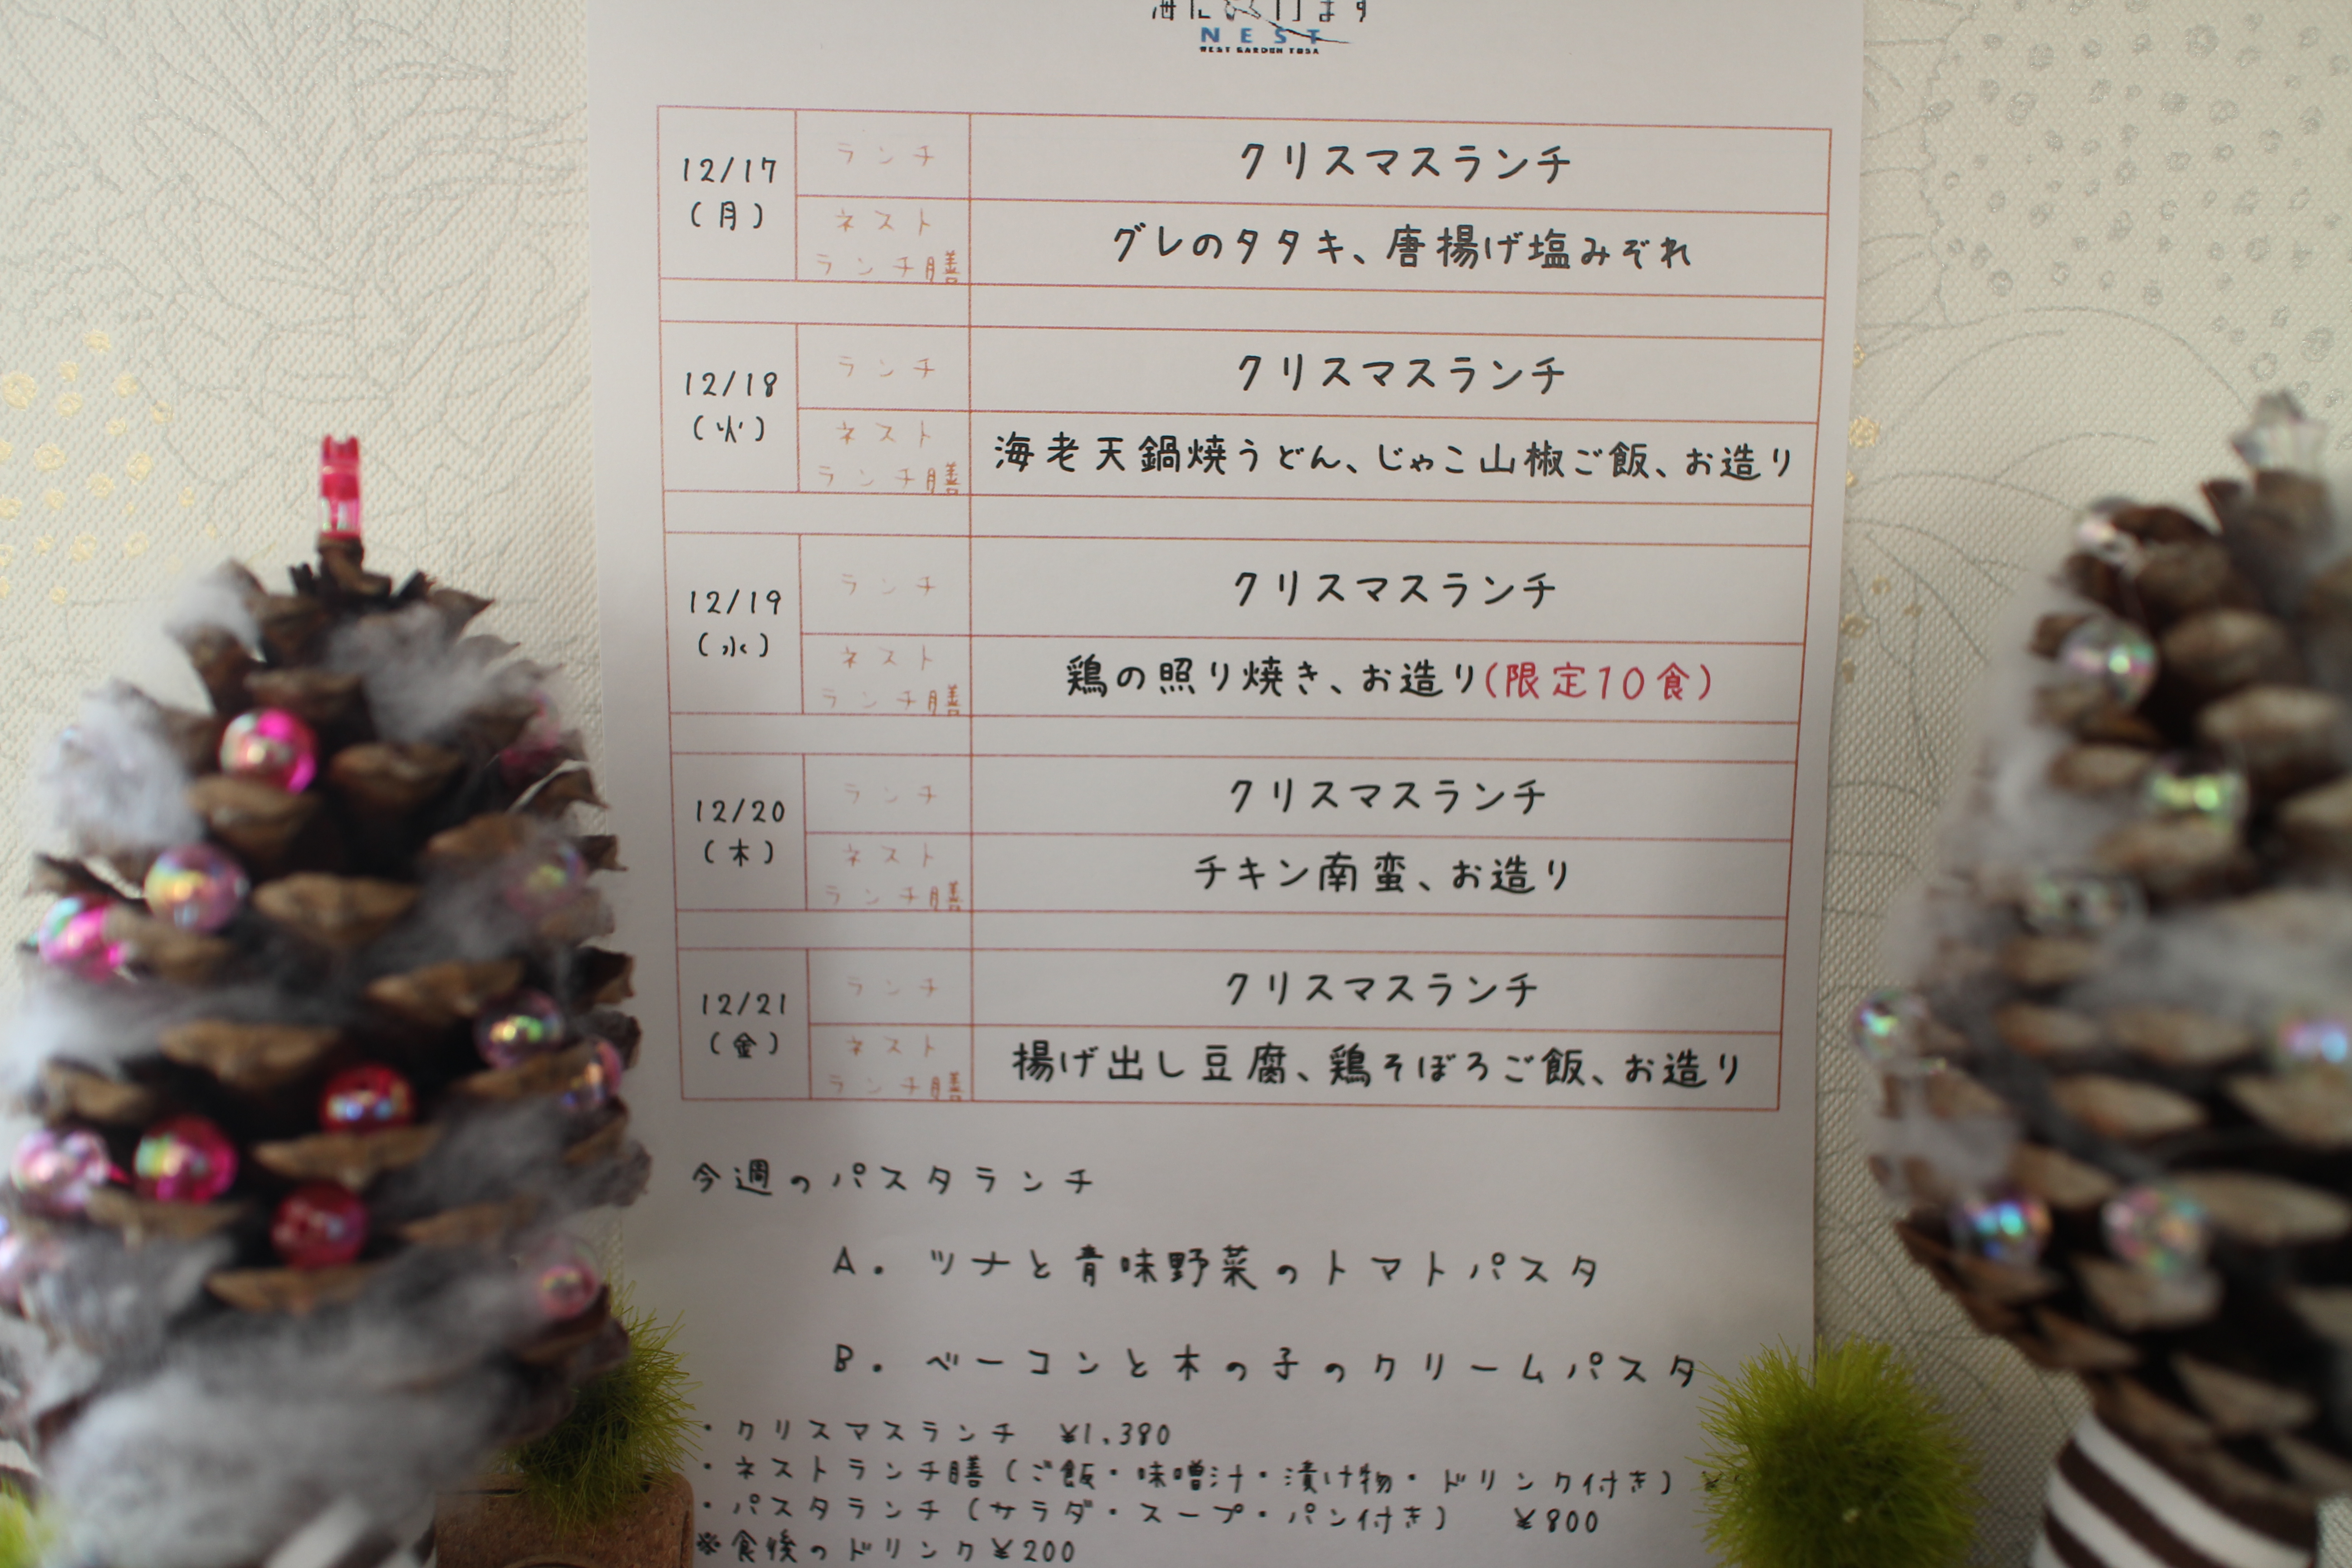 NEST
WEST GARDEN TOSA
12/17
(月)
ランチ
クリスマスランチ
ネスト
ランチ膳
グレのタタキ、唐揚げ塩みぞれ
12/18
(火)
ランチ
クリスマスランチ
ネスト
ランチ膳
海老天鍋焼うどん、じゃこ山椒ご飯、お造り
12/19
(水)
ランチ
クリスマスランチ
ネスト
ランチ膳
鶏の照り焼き、お造り(限定10食)
12/20
(木)
ランチ
クリスマスランチ
ネスト
ランチ膳
チキン南蛮、お造り
12/21
(金)
ランチ
クリスマスランチ
ネスト
ランチ膳
揚げ出し豆腐、鶏そぼろご飯、お造り
今週のパスタランチ
A. ツナと香味野菜のトマトパスタ
B. ベーコンと木の子のクリームパスタ
・クリスマスランチ ¥1,380
・ネストランチ膳(ご飯・味噌汁・漬け物・ドリンク付き)
・パスタランチ(サラダ・スープ・パン付き) ¥800
※食後のドリンク¥200